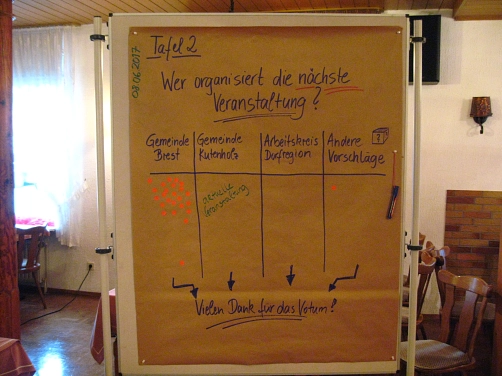 Tafel 2
03.06.2017
Wer organisiert die nächste
Veranstaltung?
Gemeinde
Brest
Gemeinde
Kutenholz
Arbeitskreis
Dorfregion
Andere
Vorschläge
7
aktuelle
Veranstaltung
Vielen Dank für das Votum!